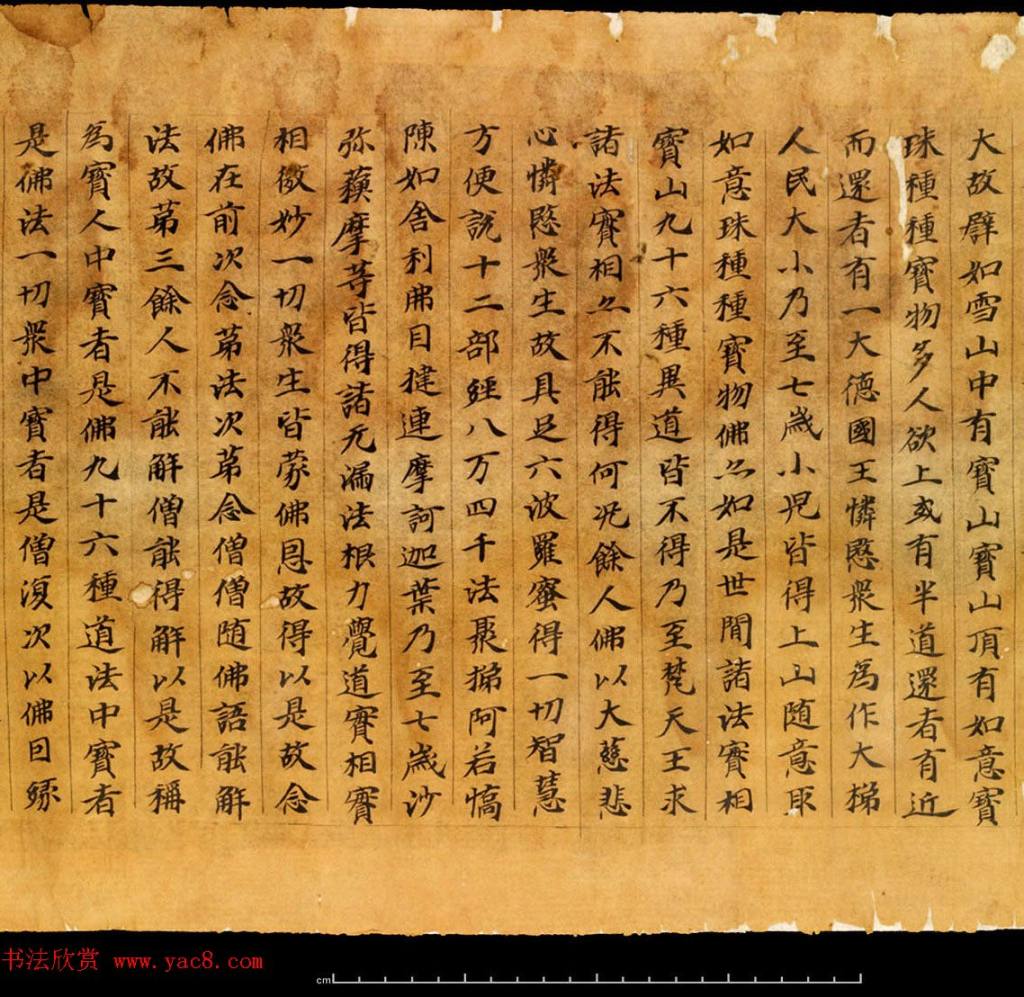 大故譬如雪山中有寶山寶山頂有如意寶
珠種種寶物多人欲上或有半道還者有近
而還者有一大德國王憐愍眾生為作大梯
人民大小乃至七歲小兒皆得上山随意取
如意珠種種寶物佛亦如是世間諸法實相
寶山九十六種異道皆不得乃至梵天王求
諸法實相亦不能得何況餘人佛以大慈悲
心憐愍眾生故具足六波羅蜜得一切智慧
方便說十二部經八万四千法聚梯阿若憍
陳如舍利弗目揵連摩訶迦葉乃至七歲沙
弥蘓摩等皆得諸无漏法根力覺道實相實
相微妙一切眾生皆蒙佛恩故得以是故念
佛在前次念第法次第念僧僧随佛語能解
法故第三餘人不能解僧能得解以是故稱
為寶人中寶者是佛九十六種道法中寶者
是佛法一切眾中寶者是僧復次以佛因緣
书法欣赏 www.yac8.com
cm